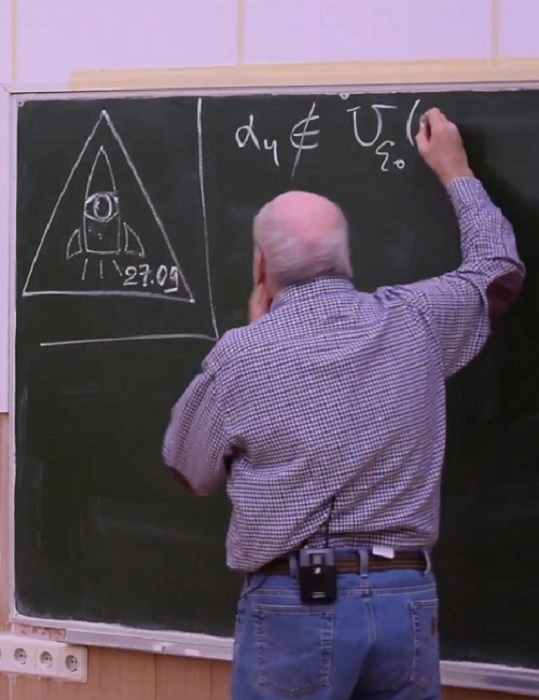 27.09
α₄ ∉ U_ε₀(